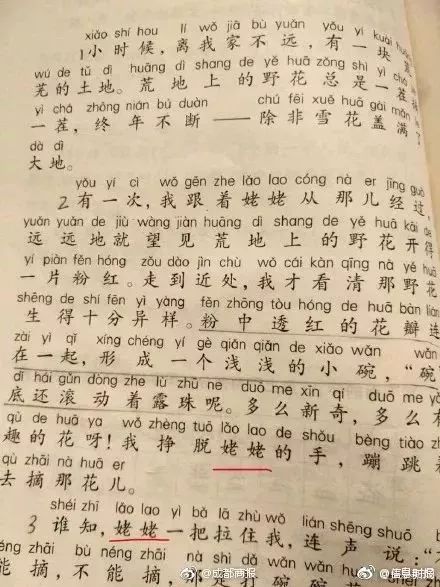 xiǎo shí hou lí wǒ jiā bù yuǎn yǒu yí kuài
1小时候，离我家不远，有一块
wú de tǔ dì huāng dì shang de yě huā zǒng shì yì chá
芜的土地。荒地上的野花总是一茬
yì chá zhōng nián bú duàn chú fēi xuě huā gài mǎn
一茬，终年不断——除非雪花盖满了
dà dì
大地。
yǒu yí cì wǒ gēn zhe lǎo lao cóng nà er jīng guò
2有一次，我跟着姥姥从那儿经过，
yuǎn yuǎn de jiù wàng jiàn huāng dì shang de yě huā kāi de
远远地就望见荒地上的野花开得
yí piàn fěn hóng zǒu dào jìn chù wǒ cái kàn qīng nà yě huā
一片粉红。走到近处，我才看清那野花
shēng de shí fēn yì yàng fěn zhōng tòu hóng de huā bàn lián
生得十分异样。粉中透红的花瓣连
zài yì qǐ xíng chéng yí gè qiǎn qiǎn de xiǎo wǎn wǎn
在一起，形成一个浅浅的小碗，“碗
dǐ hái gǔn dòng zhe lù zhū ne duō me xīn qí duō me yǒu
底还滚动着露珠呢。多么新奇，多么有
qù de huā ya wǒ zhèng tuō lǎo lao de shǒu bèng tiào zhe
趣的花呀！我挣脱姥姥的手，蹦跳着
qù zhāi nà huā er
去摘那花儿。
shéi zhī lǎo lao yì bǎ lā zhù wǒ lián shēng shuō
3谁知，姥姥一把拉住我，连声说：“
néng zhāi bù néng zhāi nà shì dǎ wǎn
能摘，不能摘，那 打碗碗
@成都商报 @信息时报